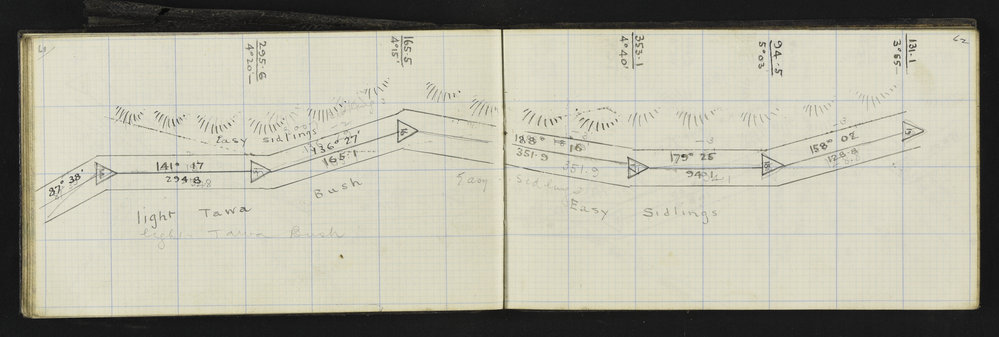 62
295.6
4°20'
165.5
4°15'
353.1
4°40'
94.5
5°03'
131.1
3°55'
Easy sidlings
87° 38'
141° 17
294.8
136° 27'
165.1
188° 16
351.9
351.9
179° 25
94.1
158° 02
128.8
light Tawa
Bush
light Tawa Bush
Easy sidlings
Easy Sidlings